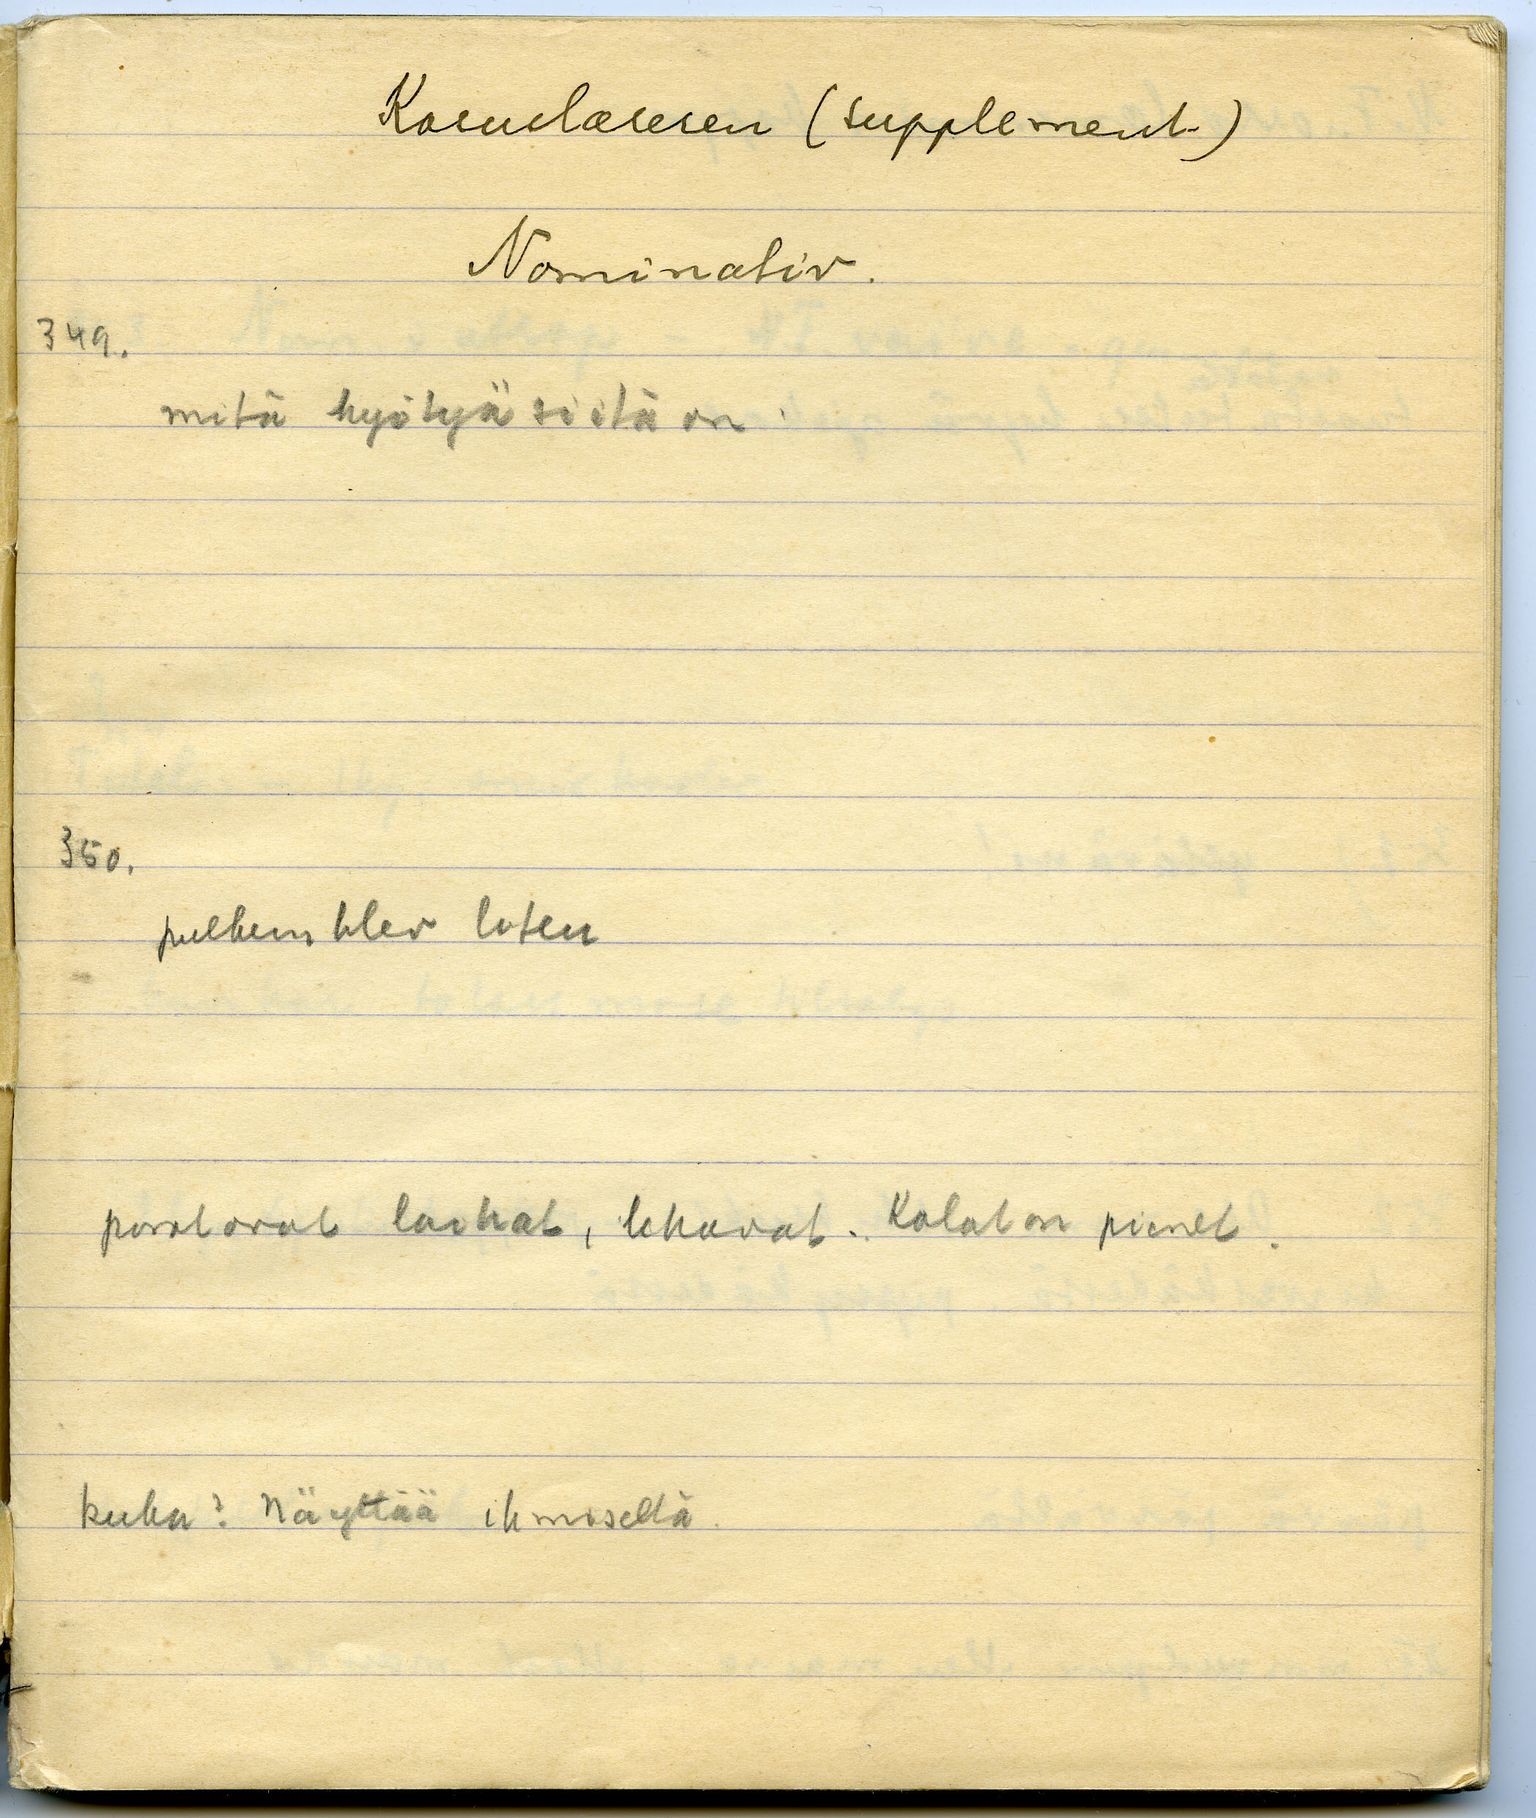 Kasuslæseren (supplement)
Nominativ.
349.
mitä hyötyä siitä on
350.
porot ovat laihat, lihavat. Kalat on pienet.
kuka? Näyttää ihmiseltä.